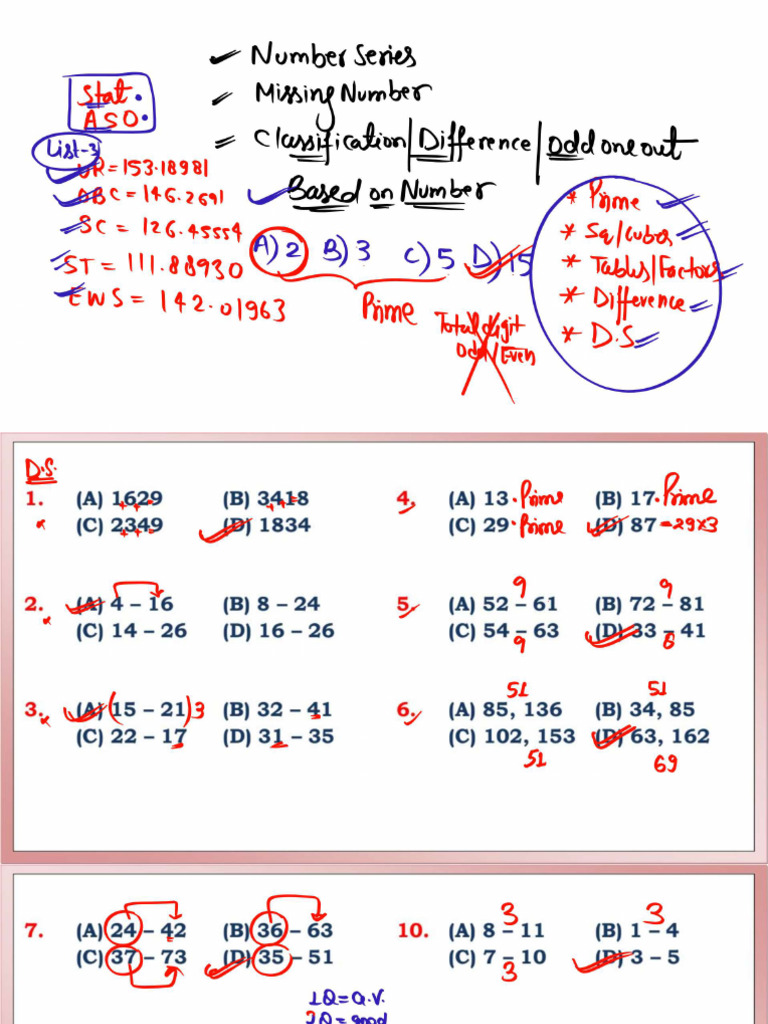 Number Series
Missing Number
Classification/Difference/odd one out
Based on Number
Stat.
ASO.
List-3
UR = 153.18981
OBC = 146.2691
SC = 126.45554
ST = 111.88930
EWS = 142.01963
A) 2 B) 3 C) 5 D) 15
Prime
Total digit
Odd/Even
* Prime
* Sq/cubes
* Tables/Factors
* Difference
* D.S
D.S.
1. (A) 1629 (B) 3418
(C) 2349 (D) 1834
2. (A) 4 – 16 (B) 8 – 24
(C) 14 – 26 (D) 16 – 26
3. (A) (15 – 21) 3 (B) 32 – 41
(C) 22 – 17 (D) 31 – 35
4. (A) 13 . Prime (B) 17 . Prime
(C) 29 . Prime (D) 87 = 29×3
9 9
5. (A) 52 – 61 (B) 72 – 81
(C) 54 – 63 (D) 33 – 41
9 8
51 51
6. (A) 85, 136 (B) 34, 85
(C) 102, 153 (D) 63, 162
51 69
7. (A) 24 – 42 (B) 36 – 63
(C) 37 – 73 (D) 35 – 51
3 3
10. (A) 8 – 11 (B) 1 – 4
(C) 7 – 10 (D) 3 – 5
3
1Q = a.v.
2Q = good